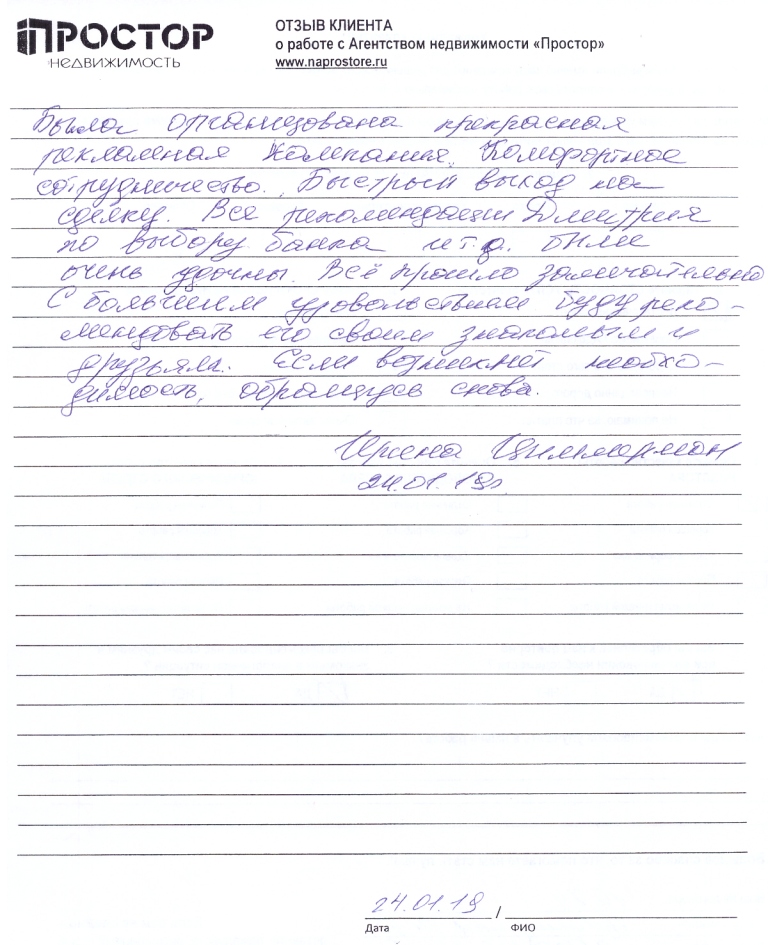 ПРОСТОР
НЕДВИЖИМОСТЬ
ОТЗЫВ КЛИЕНТА
о работе с Агентством недвижимости «Простор»
www.naprostore.ru
Была организована прекрасная
рекламная кампания. Комфортное
сотрудничество. Быстрый выход на
сделку. Все рекомендации Дмитрия
по выбору банка и т.д. были
очень удачны. Всё прошло замечательно
С большим удовольствием буду реко-
мендовать его своим знакомым и
друзьям. Если возникнет необхо-
димость, обращусь снова.
Ирина Циммерман
24.01.19г.
24.01.19 /
Дата ФИО